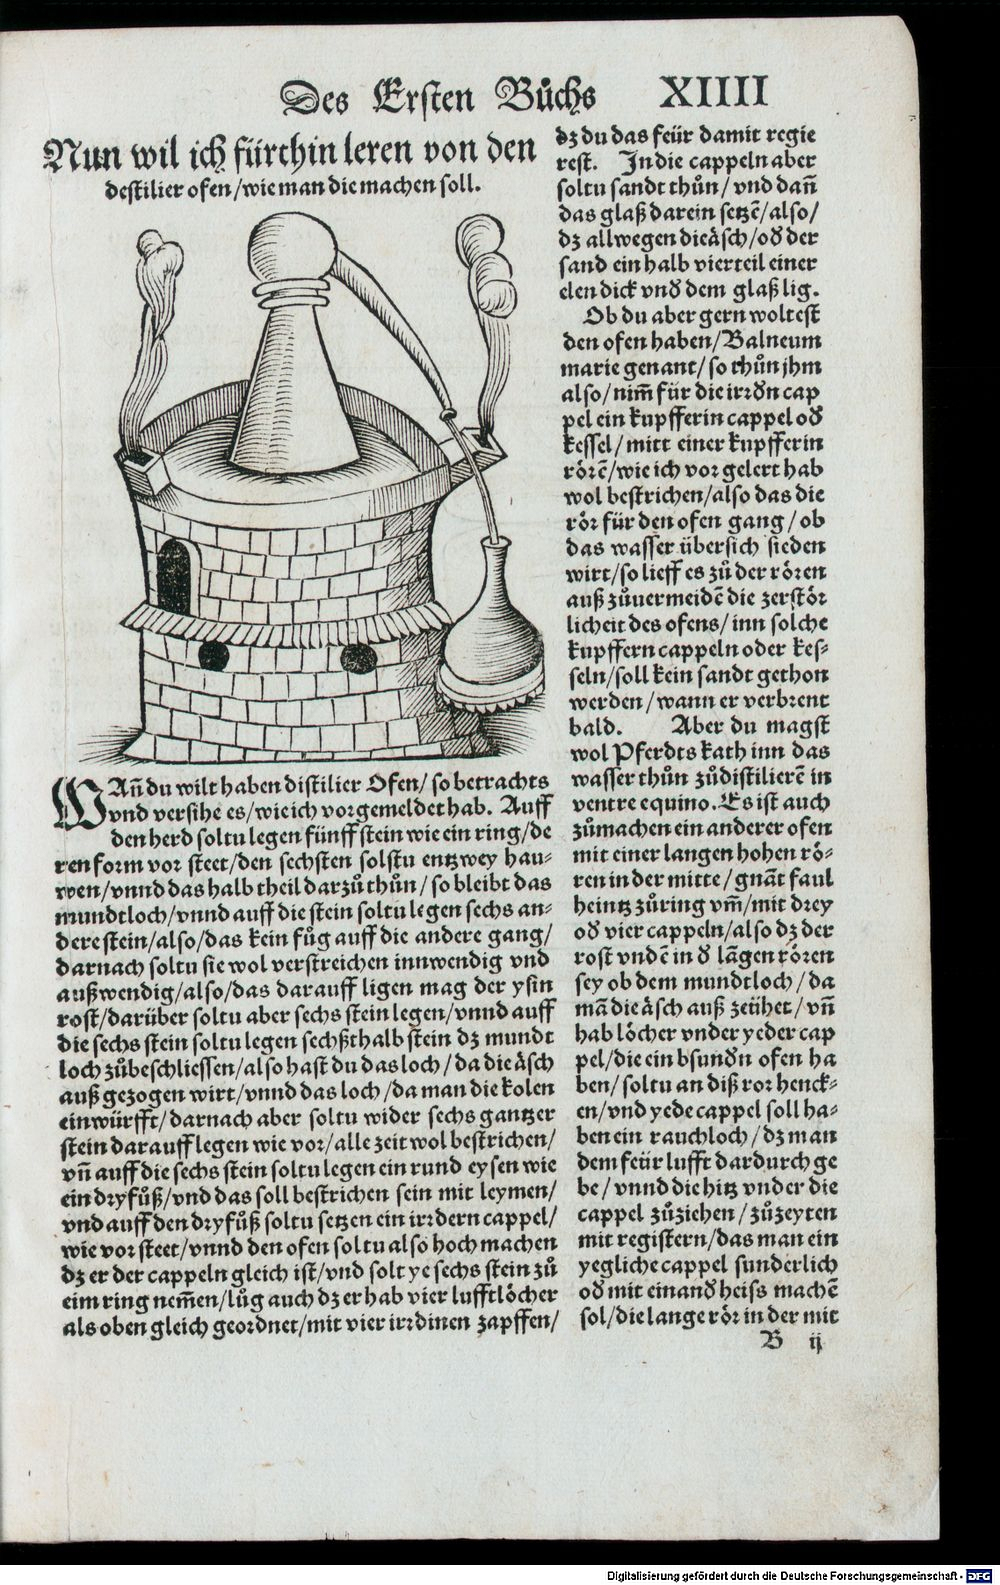 Des Ersten Bůchs XIIII
Nun wil ich fürthin leren von den
destilier ofen/wie man die machen soll.
WAñ du wilt haben distilier Ofen/so betrachts
vnd versihe es/wie ich vorgemeldet hab. Auff
den herd soltu legen fünff stein wie ein ring/de
ren form vor steet/den sechsten solstu entzwey hau-
wen/vnnd das halb theil darzů thůn/so bleibt das
mundtloch/vnnd auff die stein soltu legen sechs an-
dere stein/also/das kein fůg auff die andere gang/
darnach soltu sie wol verstreichen innwendig vnd
außwendig/also/das darauff ligen mag der ysin
rost/darüber soltu aber sechs stein legen/vnnd auff
die sechs stein soltu legen sechßthalb stein dz mundt
loch zůbeschliessen/also hast du das loch/da die äsch
auß gezogen wirt/vnnd das loch/da man die kolen
einwürfft/darnach aber soltu wider sechs gantzer
stein darauff legen wie vor/alle zeit wol bestrichen/
vñ auff die sechs stein soltu legen ein rund eysen wie
ein dryfůß/vnd das soll bestrichen sein mit leymen/
vnd auff den dryfůß soltu setzen ein irrdern cappel/
wie vor steet/vnnd den ofen soltu also hoch machen
dz er der cappeln gleich ist/vnd solt ye sechs stein zů
eim ring nem̃en/lůg auch dz er hab vier lufftlöcher
als oben gleich geordnet/mit vier irrdinen zapffen/
dz du das feür damit regie
rest. In die cappeln aber
soltu sandt thůn/vnd dañ
das glaß darein setzẽ/also/
dz allwegen die äsch/od̃ der
sand ein halb vierteil einer
elen dick vnd̃ dem glaß lig.
Ob du aber gern woltest
den ofen haben/Balneum
marie genant/so thůn jhm
also/nim̃ für die irrd̃n cap
pel ein kupfferin cappel od̃
kessel/mitt einer kupfferin
rörẽ/wie ich vor gelert hab
wol bestrichen/also das die
rör für den ofen gang/ob
das wasser übersich sieden
wirt/so lieff es zů der rören
auß zůuermeidẽ die zerstör
licheit des ofens/inn solche
kupffern cappeln oder kes-
seln/soll kein sandt gethon
werden/wann er verbrent
bald. Aber du magst
wol Pferdts kath inn das
wasser thůn zůdistilierẽ in
ventre equino. Es ist auch
zůmachen ein anderer ofen
mit einer langen hohen rö-
ren in der mitte/gnãt faul
heintz zůring vm̃/mit drey
od̃ vier cappeln/also dz der
rost vndẽ in d̃ lãgen rören
sey ob dem mundtloch/da
mã die äsch auß zeühet/vñ
hab löcher vnder yeder cap
pel/die ein bsund̃n ofen ha
ben/soltu an diß ror henck-
en/vnd yede cappel soll ha-
ben ein rauchloch/dz man
dem feür lufft dardurch ge
be/vnnd die hitz vnder die
cappel zůziehen/zůzeyten
mit registern/das man ein
yegliche cappel sunderlich
od̃ mit einand̃ heiss machẽ
sol/die lange rör in der mit
B ij
Digitalisierung gefördert durch die Deutsche Forschungsgemeinschaft - DFG